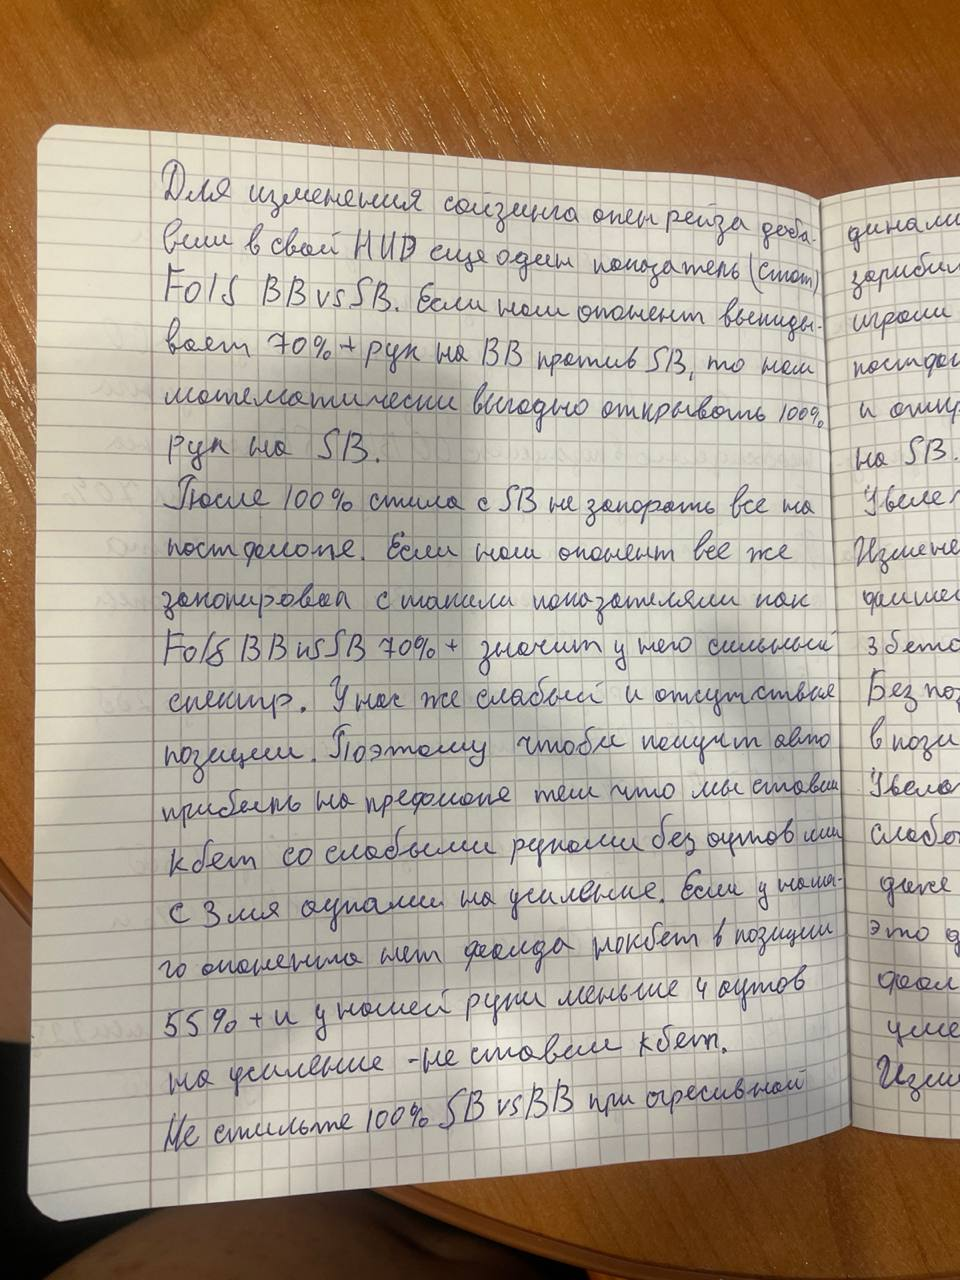 Для изменения сайзинга опен рейза доба-
вим в свой HUD еще один показатель (стат)
Fold BB vs SB. Если наш опонент выкиды-
вает 70%+ рук на BB против SB, то нам
математически выгодно открывать 100%
рук на SB.
После 100% стила с SB не запорать все на
постфлопе. Если наш опонент все же
законировал с такими показателями как
Fold BB vs SB 70%+ значит у него сильный
спектр. У нас же слабый и отсутствие
позиции. Поэтому чтобы авто
прибыль на префлопе тем что мы ставим
кбет со слабыми руками без аутов или
с 3мя аутами на усиление. Если у наше-
го опонента нет фолда на кбет в позиции
55%+ и у нашей руки меньше 4 аутов
на усиление - не ставим кбет.
Не стильте 100% SB vs BB при агресивной
динами
зарибил
играми
постфло
и откр
на SB.
Увелел
Измене
фишеи
3 бета
Без поз
в пози
Увело
слабо
даже
это д
фол
уме
Изм